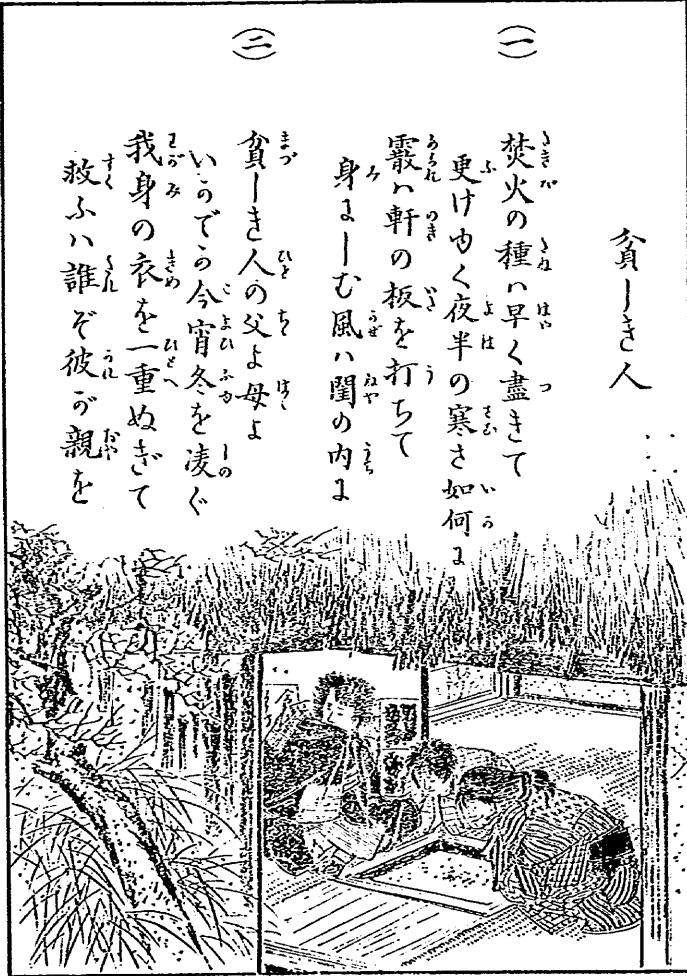 貧しき人
(一)
焚火の種ハ早く盡きて
更けゆく夜半の寒さ如何に
霰ハ軒の板を打ちて
身にしむ風ハ閨の内に
(二)
貧しき人の父よ母よ
いかでか今宵冬を凌ぐ
我身の衣を一重ぬぎて
救ふハ誰ぞ彼が親を